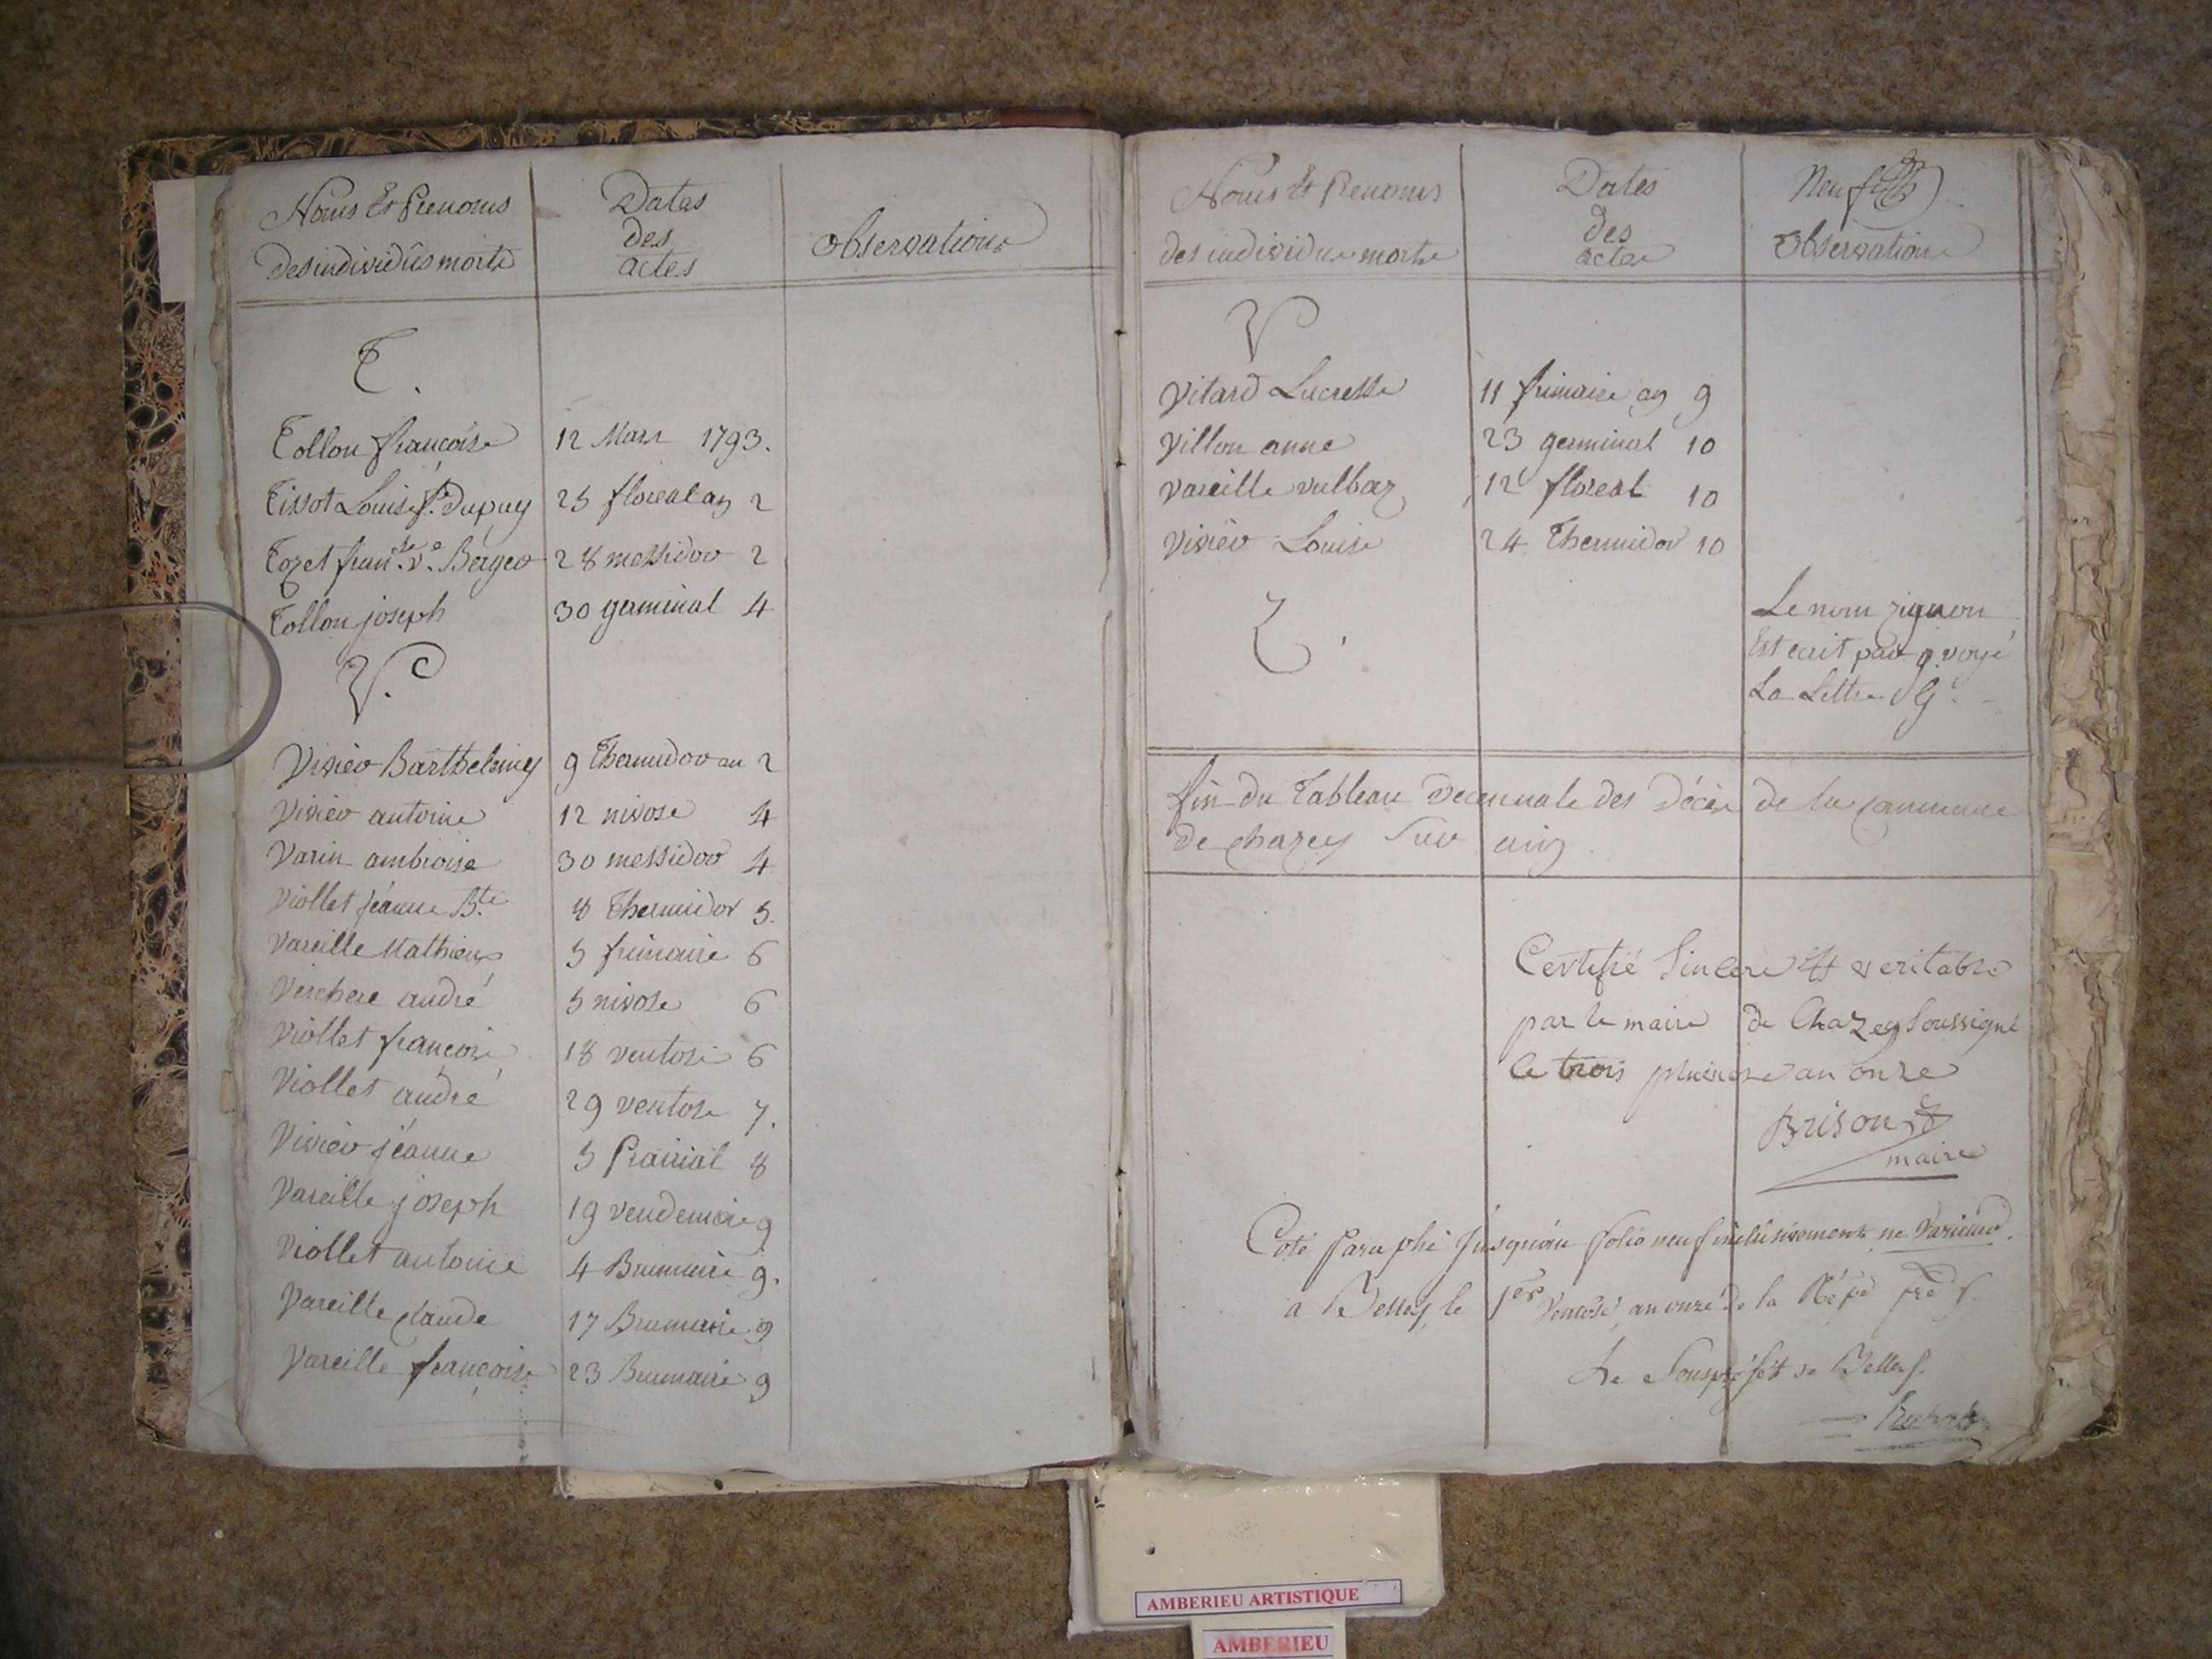 Noms Et Prenoms
des individûs morts
Dates
des
actes
observations
T.
Tollon françoise 12 Mars 1793.
Tissot Louise f.e Dupuy 25 floreal an 2
Tozet fran.se v.e Berger 28 messidor 2
Tollon joseph 30 germinal 4
V.
Vivier Barthelemy 9 Thermidor an 2
Vivier antoine 12 nivose 4
Varin ambroise 30 messidor 4
Viollet jéanne B.te 8 Thermidor 5.
Vareille Mathieu 5 frimaire 6
Verchere andré 5 nivose 6
Viollet françoise 18 ventose 6
Viollet andré 29 ventose 7.
Vivier jéanne 5 Prairial 8
Vareille joseph 19 vendemiaire 9
Viollet antoine 4 Brumaire 9.
Vareille claude 17 Brumaire 9
Vareille françoise 23 Brumaire 9
Noms Et Prenoms
des individus morts
Dates
des
actes
Neuf
observations
V
Vitard Lucresse 11 frimaire an 9
Villon anne 23 germinal 10
Vareille vulbaz 12 floreal 10
Vivier Louise 24 Thermidor 10
Z.
Le nom zignon
Est ecrit par g. voyé
La Lettre G.
fin du Tableau Decennale des Décès de la commune
de chazey Sur ain
Certifié Sincere Et veritable
par le maire de Chazey Soussigné
le trois pluviose an onze
Brison
maire
Coté Paraphé jusqu'au folio neuf inclusivement ne Varietur.
a Belley le 1er Ventose an onze de la Rép.e fr.e
Le Souspréfet de Belley
AMBERIEU ARTISTIQUE
AMBERIEU